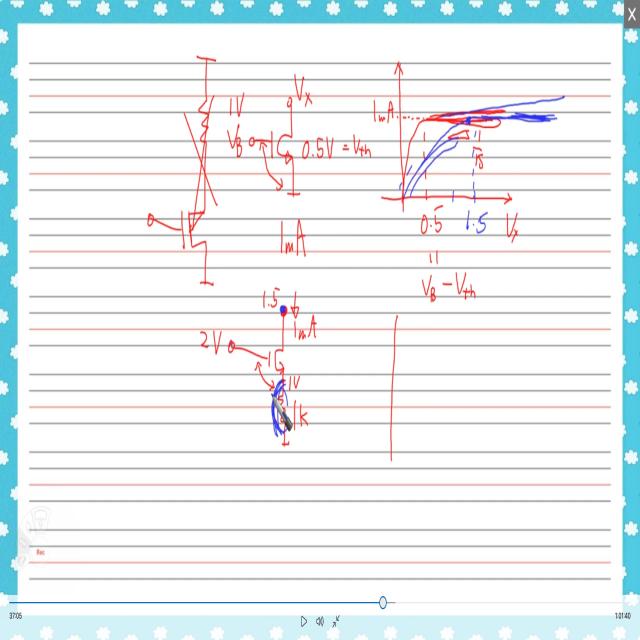 1V
Vx
VB
0.5V = Vth
1mA
1mA
0.5
1.5
Vx
"
VB - Vth
1.5
1mA
2V
1V
1K
Rec
37:05
1:01:40